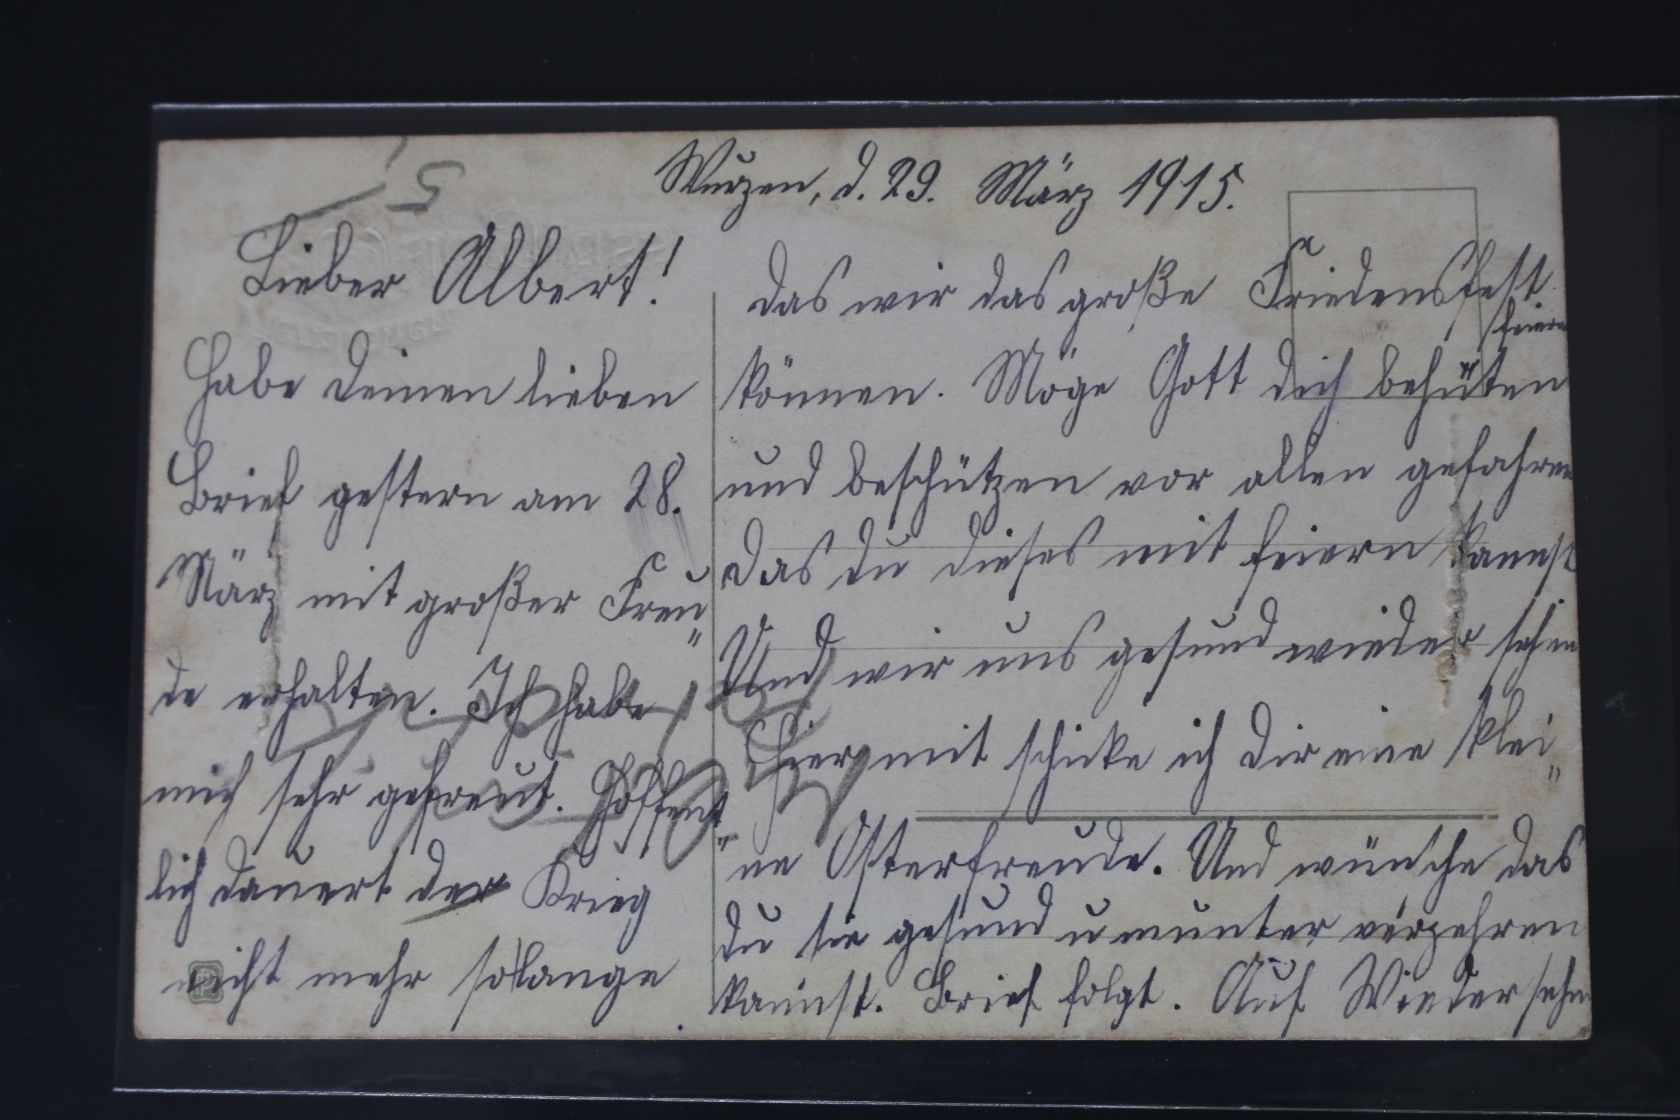 Wurzen, d. 29. März 1915.
Lieber Albert!
Habe deinen lieben
Brief gestern am 28.
März mit großer Freu„
de erhalten. Ich habe
mich sehr gefreut. Hoffent„
lich dauert der Krieg
nicht mehr solange
das wir das große Friedensfest
feiern
können. Möge Gott dich behüten
und beschützen vor allen gefahren
das du dieses mit feiern kannst
Und wir uns gesund wieder sehen
Hier mit schicke ich dir eine klei„
ne Osterfreude. Und wünsche das
du sie gesund u munter verzehren
kannst. Brief folgt. Auf Wiedersehn
5